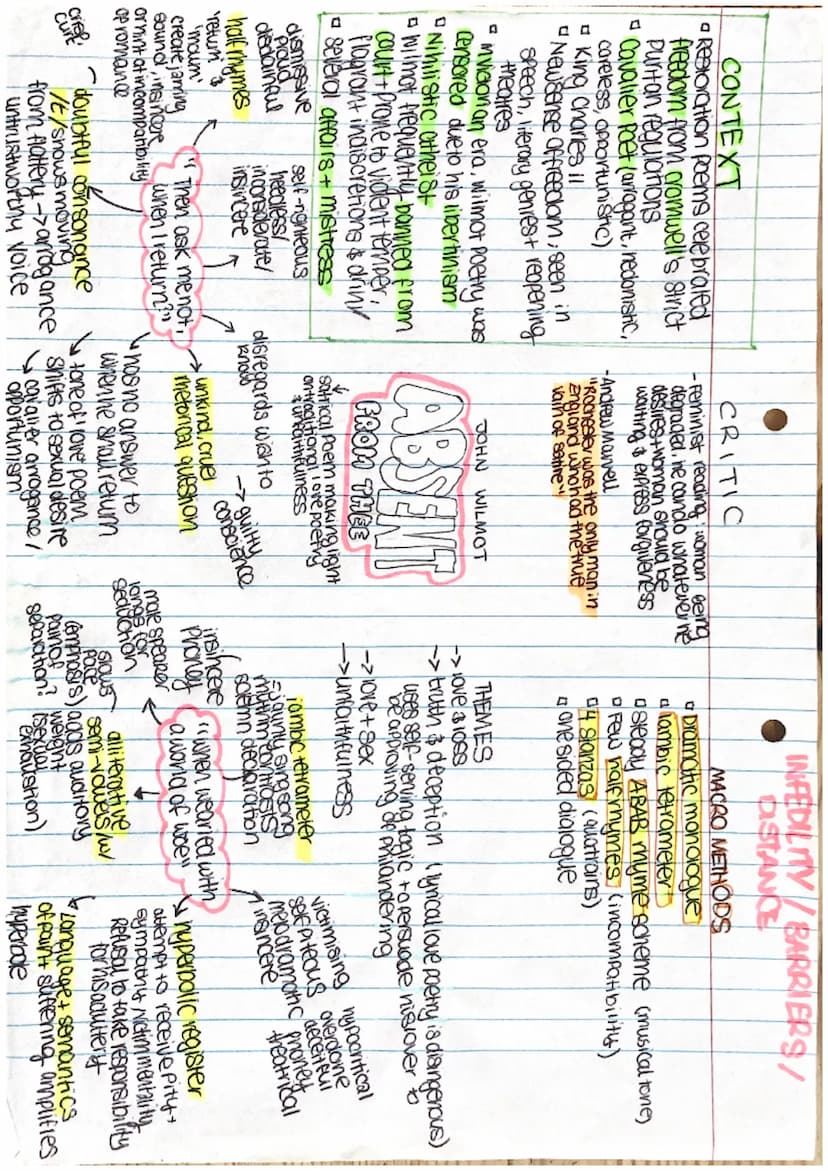 INFEDILITY / BARRIERS /
DISTANCE
CONTEXT
▫ Restoration poems celebrated
freedom from cromwell's strict
Puritan regulations
▫ Cavalier Poet (arrogant, hedonistic,
careless, opportunistic)
▫ King Charles II
▫ New sense of freedom; seen in
speech, literary genres + reopening
theatres
▫ In victorian era, wilmot poetry was
censored due to his libertinism
▫ Nihilistic atheist
▫ wilmot frequently banned from
court + prone to violent temper,
flagrant indiscretions & drink
▫ several affairs + mistress
CRITIC
- Feminist reading: woman being
degraded, he can do whatever he
desires + woman should be
waiting & express forgiveness
- Andrew Marvell
"Rochester was the only man in
England who had the true
vain of satire"
MACRO METHODS
▫ Dramatic monologue
▫ Iambic tetrameter
▫ steady ABAB rhyme scheme (musical tone)
▫ Few half rhymes (incompatibility)
▫ 4 stanzas (quatrains)
▫ one sided dialogue
JOHN WILMOT
ABSENT
FROM THEE
satirical poem making light
on traditional love poetry
& unfaithfulness
THEMES
→ love & loss
→ truth & deception (lyrical love poetry is disingenous)
uses self-serving topic to persuade his lover to
be approving of philandering
→ love + sex
→ unfaithfulness
"Then ask me not,
when I return?"
dismissive
proud
disdainful
half rhymes
'return' &
'mourn'
create jarring
sound, insincere
or hint at incompatibility
of romance
self-righteous
heedless/
inconsiderate/
insincere
disregards wish to
know
→ guilty
conscience
unkind, cruel
rhetorical question
has no answer to
when he shall return
tone of love poem
shifts to sexual desire
→ cavalier arrogance /
opportunism
crisp,
curt
doubtful consonance
/t/ shows moving
from flattery → arrogance
untrustworthy voice
"when wearied with
a world of woe"
iambic tetrameter
= jaunty singsong
rhythm contrasts
solemn declaration
insincere
phoney
male speaker
longs for
seduction
alliterative
semi-vowels /w/
slows
pace
(emphasis) adds auditory
pain of weight
separation? (sexual
exhaustion)
victimising
self piteous
melodramatic
insincere
hypocritical
overdone
deceitful
phoney
theatrical
hyperbolic register
attempt to receive pity +
sympathy, victim mentality,
refusal to take responsibility
for his adultery
Language + semantics
of pain + suffering amplifies
hyperbole